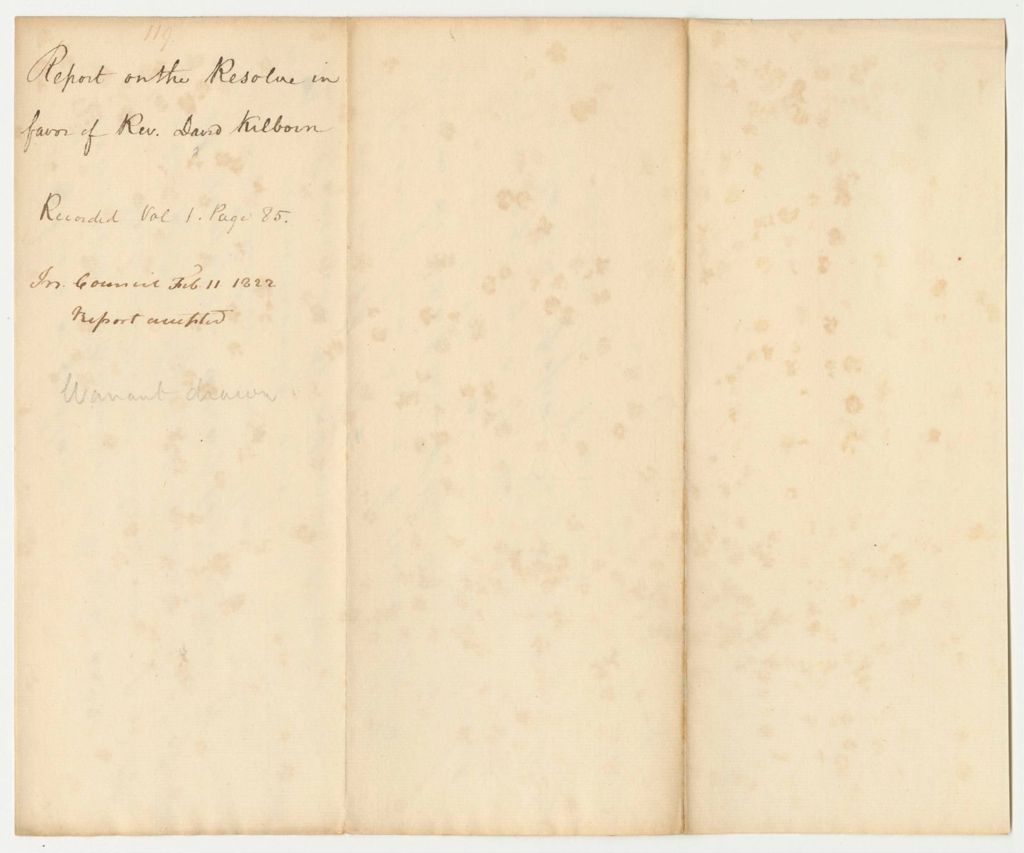 119
Report on the Resolve in
favor of Rev. David Kilborn
Recorded Vol 1. Page 85.
In Council Feb 11 1822
Report accepted
Warrant drawn